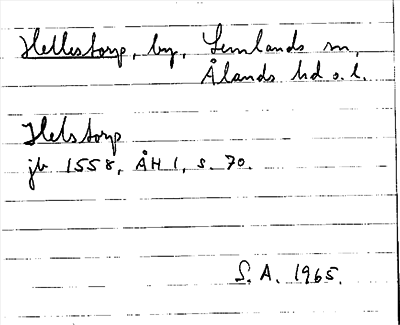 Hellestorp, by, Lemlands sn,
Ålands hd o. l.
Helstorp
jb 1558, ÅH 1, s. 70.
S. A. 1965.